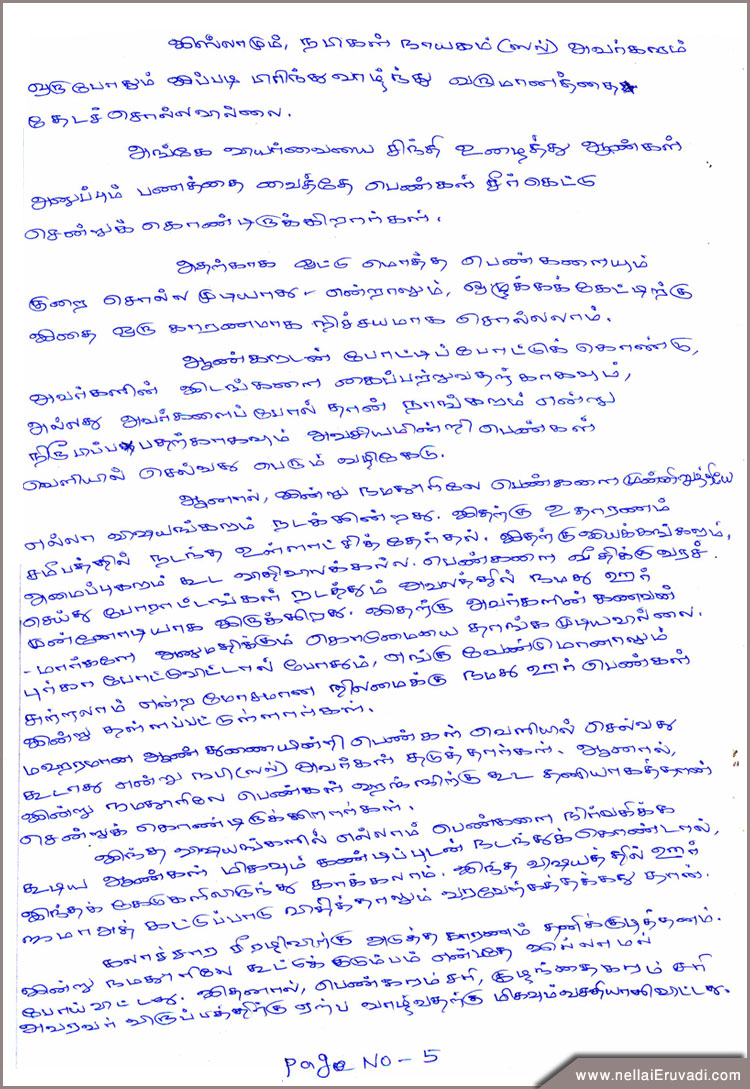 இஸ்லாமும், நபிகள் நாயகம் (ஸல்) அவர்களும்
ஒருபோதும் இப்படி பிரிந்துவாழ்ந்து வருமானத்தை
தேடச் சொல்லவில்லை.
அங்கே வியர்வையை சிந்தி உழைத்து ஆண்கள்
அனுப்பும் பணத்தை வைத்தே பெண்கள் சீர்கெட்டு
சென்றுக் கொண்டிருக்கிறார்கள்.
அதற்காக ஒட்டு மொத்த பெண்களையும்
குறை சொல்ல முடியாது - என்றாலும், ஒழுக்கக்கேட்டிற்கு
இதை ஒரு காரணமாக நிச்சயமாக சொல்லலாம்.
ஆண்களுடன் போட்டிப்போட்டுக் கொண்டு,
அவர்களின் இடங்களை கைப்பற்றுவதற்காகவும்,
அல்லது அவர்களைப்போல் தான் நாங்களும் என்று
நிரூபிப்பதற்காகவும் அவசியமின்றி பெண்கள்
வெளியில் செல்வது பெரும் வழிகேடு.
ஆனால், இன்று நமதூரிலே பெண்களை முன்னிறுத்தியே
எல்லா விஷயங்களும் நடக்கின்றது. இதற்கு உதாரணம்
சமீபத்தில் நடந்த உள்ளாட்சித்தேர்தல். இதற்கு இயக்கங்களும்,
அமைப்புகளும் கூட விதிவிலக்கல்ல. பெண்களை வீதிக்கு வரச்
செய்து போராட்டங்கள் நடத்தும் அவலத்தில் நமது ஊர்
முன்னோடியாக இருக்கிறது. இதற்கு அவர்களின் கணவன்
-மார்களே அனுமதிக்கும் கொடுமையை தாங்க முடியவில்லை.
புர்கா போட்டுவிட்டால் போதும், எங்கு வேண்டுமானாலும்
சுற்றலாம் என்ற மோசமான நிலமைக்கு நமது ஊர் பெண்கள்
இன்று தள்ளப்பட்டுள்ளார்கள்.
மஹ்ரமான ஆண் துணையின்றி பெண்கள் வெளியில் செல்வது
கூடாது என்று நபி (ஸல்) அவர்கள் தடுத்தார்கள். ஆனால்,
இன்று நமதூரிலே பெண்கள் ஹஜ்ஜிற்கு கூட தனியாகத்தான்
சென்றுக் கொண்டிருக்கிறார்கள்.
இந்த விஷயங்களில் எல்லாம் பெண்களை நிர்வகிக்க
கூடிய ஆண்கள் மிகவும் கண்டிப்புடன் நடந்துக்கொண்டால்,
இந்தக் கேடுகளிலிருந்து காக்கலாம். இந்த விஷயத்தில் ஊர்
ஜமாஅத் கட்டுப்பாடு விதித்தாலும் வரவேற்கத்தக்கது தான்.
கலாச்சார சீரழிவிற்கு அடுத்த காரணம் தனிக்குடித்தனம்.
இன்று நமதூரிலே கூட்டுக் குடும்பம் என்பதே இல்லாமல்
போய் விட்டது. இதனால், பெண்களும் சரி, குழந்தைகளும் சரி
அவரவர் விருப்பத்திற்கு ஏற்ப வாழ்வதற்கு மிகவும் வசதியாகிவிட்டது.
Page No - 5
www.nellaiEruvadi.com